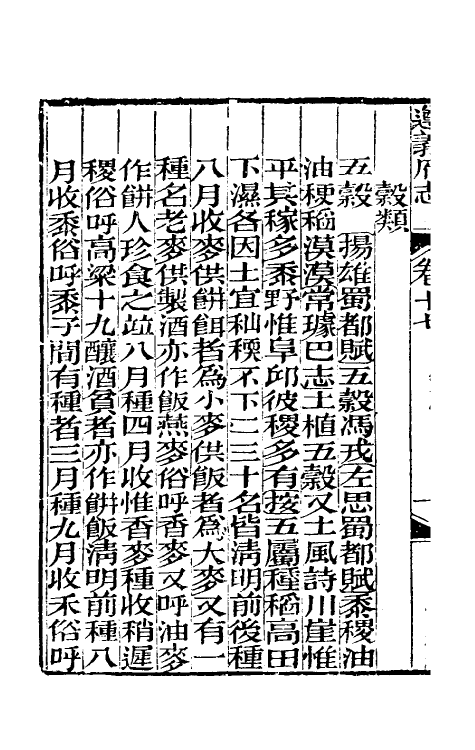 遵義府志
卷十七
穀類
五穀　揚雄蜀都賦五穀馮戎左思蜀都賦黍稷油
油粳稻漠漠常璩巴志土植五穀又土風詩川崖惟
平其稼多黍野惟阜邱彼稷多有按五屬種稻高田
下濕各因土宜秈稬不下二三十名皆淸明前後種
八月收麥供餠餌者爲小麥供飯者爲大麥又有一
種名老麥供製酒亦作飯燕麥俗呼香麥又呼油麥
作餠人珍食之竝八月種四月收惟香麥種收稍遲
稷俗呼高粱十九釀酒貧者亦作餠飯淸明前種八
月收黍俗呼黍子間有種者三月種九月收禾俗呼